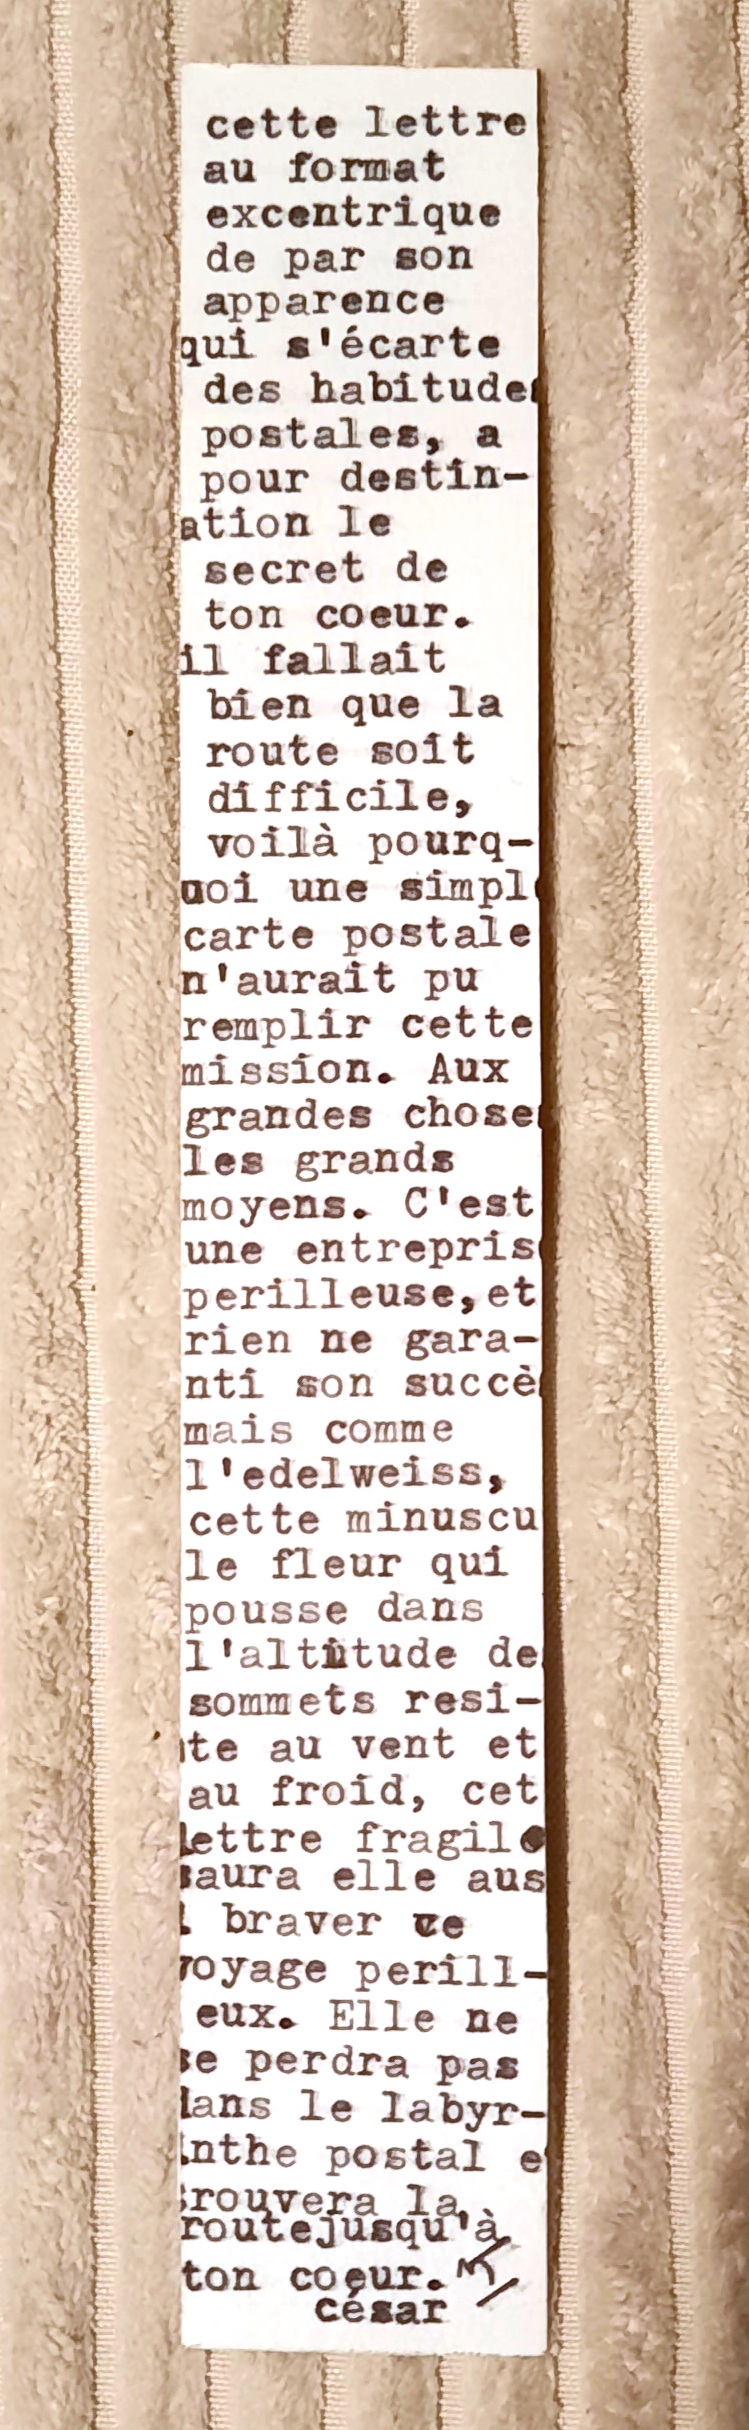 cette lettre
au format
excentrique
de par son
apparence
qui s'écarte
des habitudes
postales, a
pour destin-
ation le
secret de
ton coeur.
il fallait
bien que la
route soit
difficile,
voilà pourq-
uoi une simple
carte postale
n'aurait pu
remplir cette
mission. Aux
grandes choses
les grands
moyens. C'est
une entreprise
perilleuse,et
rien ne gara-
nti son succès
mais comme
l'edelweiss,
cette minuscu
le fleur qui
pousse dans
l'altitude des
sommets resi-
te au vent et
au froid, cet
lettre fragile
saura elle aus
i braver ce
voyage perill-
eux. Elle ne
se perdra pas
dans le labyr-
inthe postal e
trouvera la
routejusqu'à
ton coeur.
césar